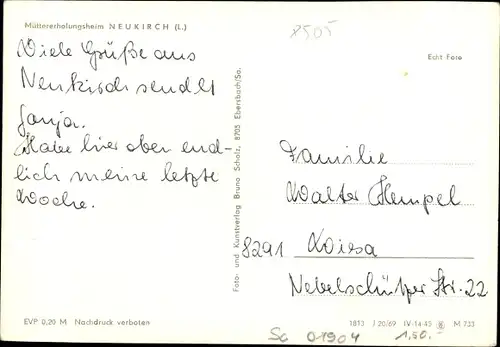 Müttererholungsheim NEUKIRCH (L.)
Viele Grüße aus
Neukirch sendet
Sonja.
Habe hier oben end-
lich meine letzte
Woche.
Foto- und Kunstverlag Bruno Scholz, 8705 Ebersbach/Sa.
8505
Echt Foto
Familie
Walter Hempel
8291 Wiesa
Nebelschützer Str. 22
EVP 0,20 M Nachdruck verboten
1813 J 20/69 IV-14-45 M 733
Sc 01904 1,50.